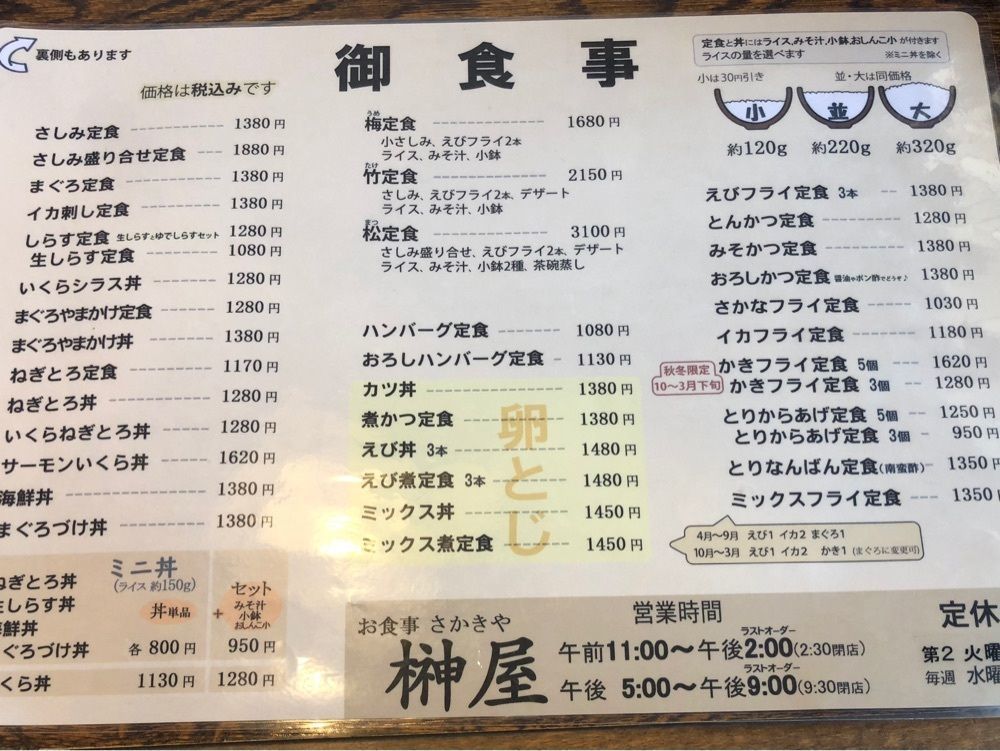 裏側もあります
御食事
価格は税込みです
さしみ定食 1380円
さしみ盛り合せ定食 1880円
まぐろ定食 1380円
イカ刺し定食 1380円
しらす定食 生しらすとゆでしらすセット 1280円
生しらす定食 1080円
いくらシラス丼 1280円
まぐろやまかけ定食 1280円
まぐろやまかけ丼 1380円
ねぎとろ定食 1170円
ねぎとろ丼 1280円
いくらねぎとろ丼 1280円
サーモンいくら丼 1620円
海鮮丼 1380円
まぐろづけ丼 1380円
ミニ丼
(ライス 約150g)
丼単品 + セット
みそ汁
小鉢
おしんこ小
ねぎとろ丼
生しらす丼
海鮮丼
ぐろづけ丼 各800円 950円
くら丼 1130円 1280円
うめ
梅定食 1680円
小さしみ、えびフライ2本
ライス、みそ汁、小鉢
たけ
竹定食 2150円
さしみ、えびフライ2本、デザート
ライス、みそ汁、小鉢
まつ
松定食 3100円
さしみ盛り合せ、えびフライ2本、デザート
ライス、みそ汁、小鉢2種、茶碗蒸し
ハンバーグ定食 1080円
おろしハンバーグ定食 1130円
卵とじ
カツ丼 1380円
煮かつ定食 1380円
えび丼 3本 1480円
えび煮定食 3本 1480円
ミックス丼 1450円
ミックス煮定食 1450円
定食と丼にはライス,みそ汁,小鉢,おしんこ小 が付きます
ライスの量を選べます ※ミニ丼を除く
小は30円引き 並・大は同価格
小 並 大
約120g 約220g 約320g
えびフライ定食 3本 1380円
とんかつ定食 1280円
みそかつ定食 1380円
おろしかつ定食 醤油やポン酢でどうぞ♪ 1380円
さかなフライ定食 1030円
イカフライ定食 1180円
秋冬限定
10〜3月下旬
かきフライ定食 5個 1620円
かきフライ定食 3個 1280円
とりからあげ定食 5個 1250円
とりからあげ定食 3個 950円
とりなんばん定食(南蛮酢) 1350円
ミックスフライ定食 1350円
4月〜9月 えび1 イカ2 まぐろ1
10月〜3月 えび1 イカ2 かき1 (まぐろに変更可)
お食事 さかきや
榊屋
営業時間
ラストオーダー
午前11:00〜午後2:00(2:30閉店)
ラストオーダー
午後 5:00〜午後9:00(9:30閉店)
定休
第2 火曜
毎週 水曜